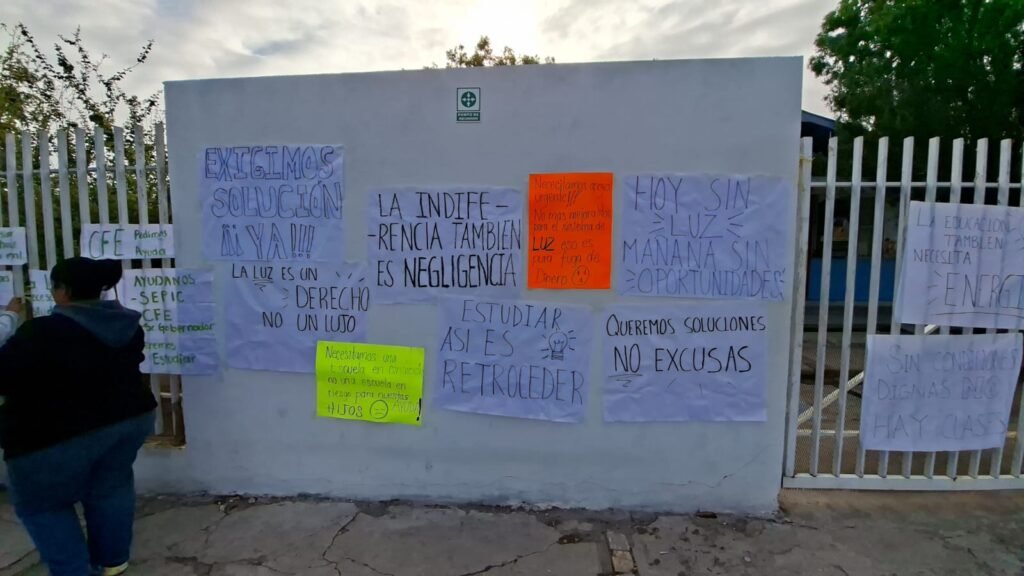 PUNTO DE
REUNIÓN
EXIGIMOS
SOLUCIÓN
¡¡¡YA!!!
LA LUZ ES UN
DERECHO
NO UN LUJO
LA INDIFE-
-RENCIA TAMBIEN
ES NEGLIGENCIA
Necesitamos apoyo
urgente!!
No mas mejoras
para el sistema de
LUZ eso es
pura fuga de
Dinero
HOY SIN
LUZ
MAÑANA SIN
OPORTUNIDADES
Necesitamos una
Escuela en
no una escuela en
riesgo para nuestros
HIJOS
ESTUDIAR
ASI ES
RETROCEDER
QUEREMOS SOLUCIONES
NO EXCUSAS
CFE Pedimos
Ayuda
AYUDANOS
-SEPIC
-CFE
Gobernador
Estudiar
LA EDUCACION
TAMBIEN
NECESITA
SIN CONDICIONES
DIGNAS NO
HAY CLASES